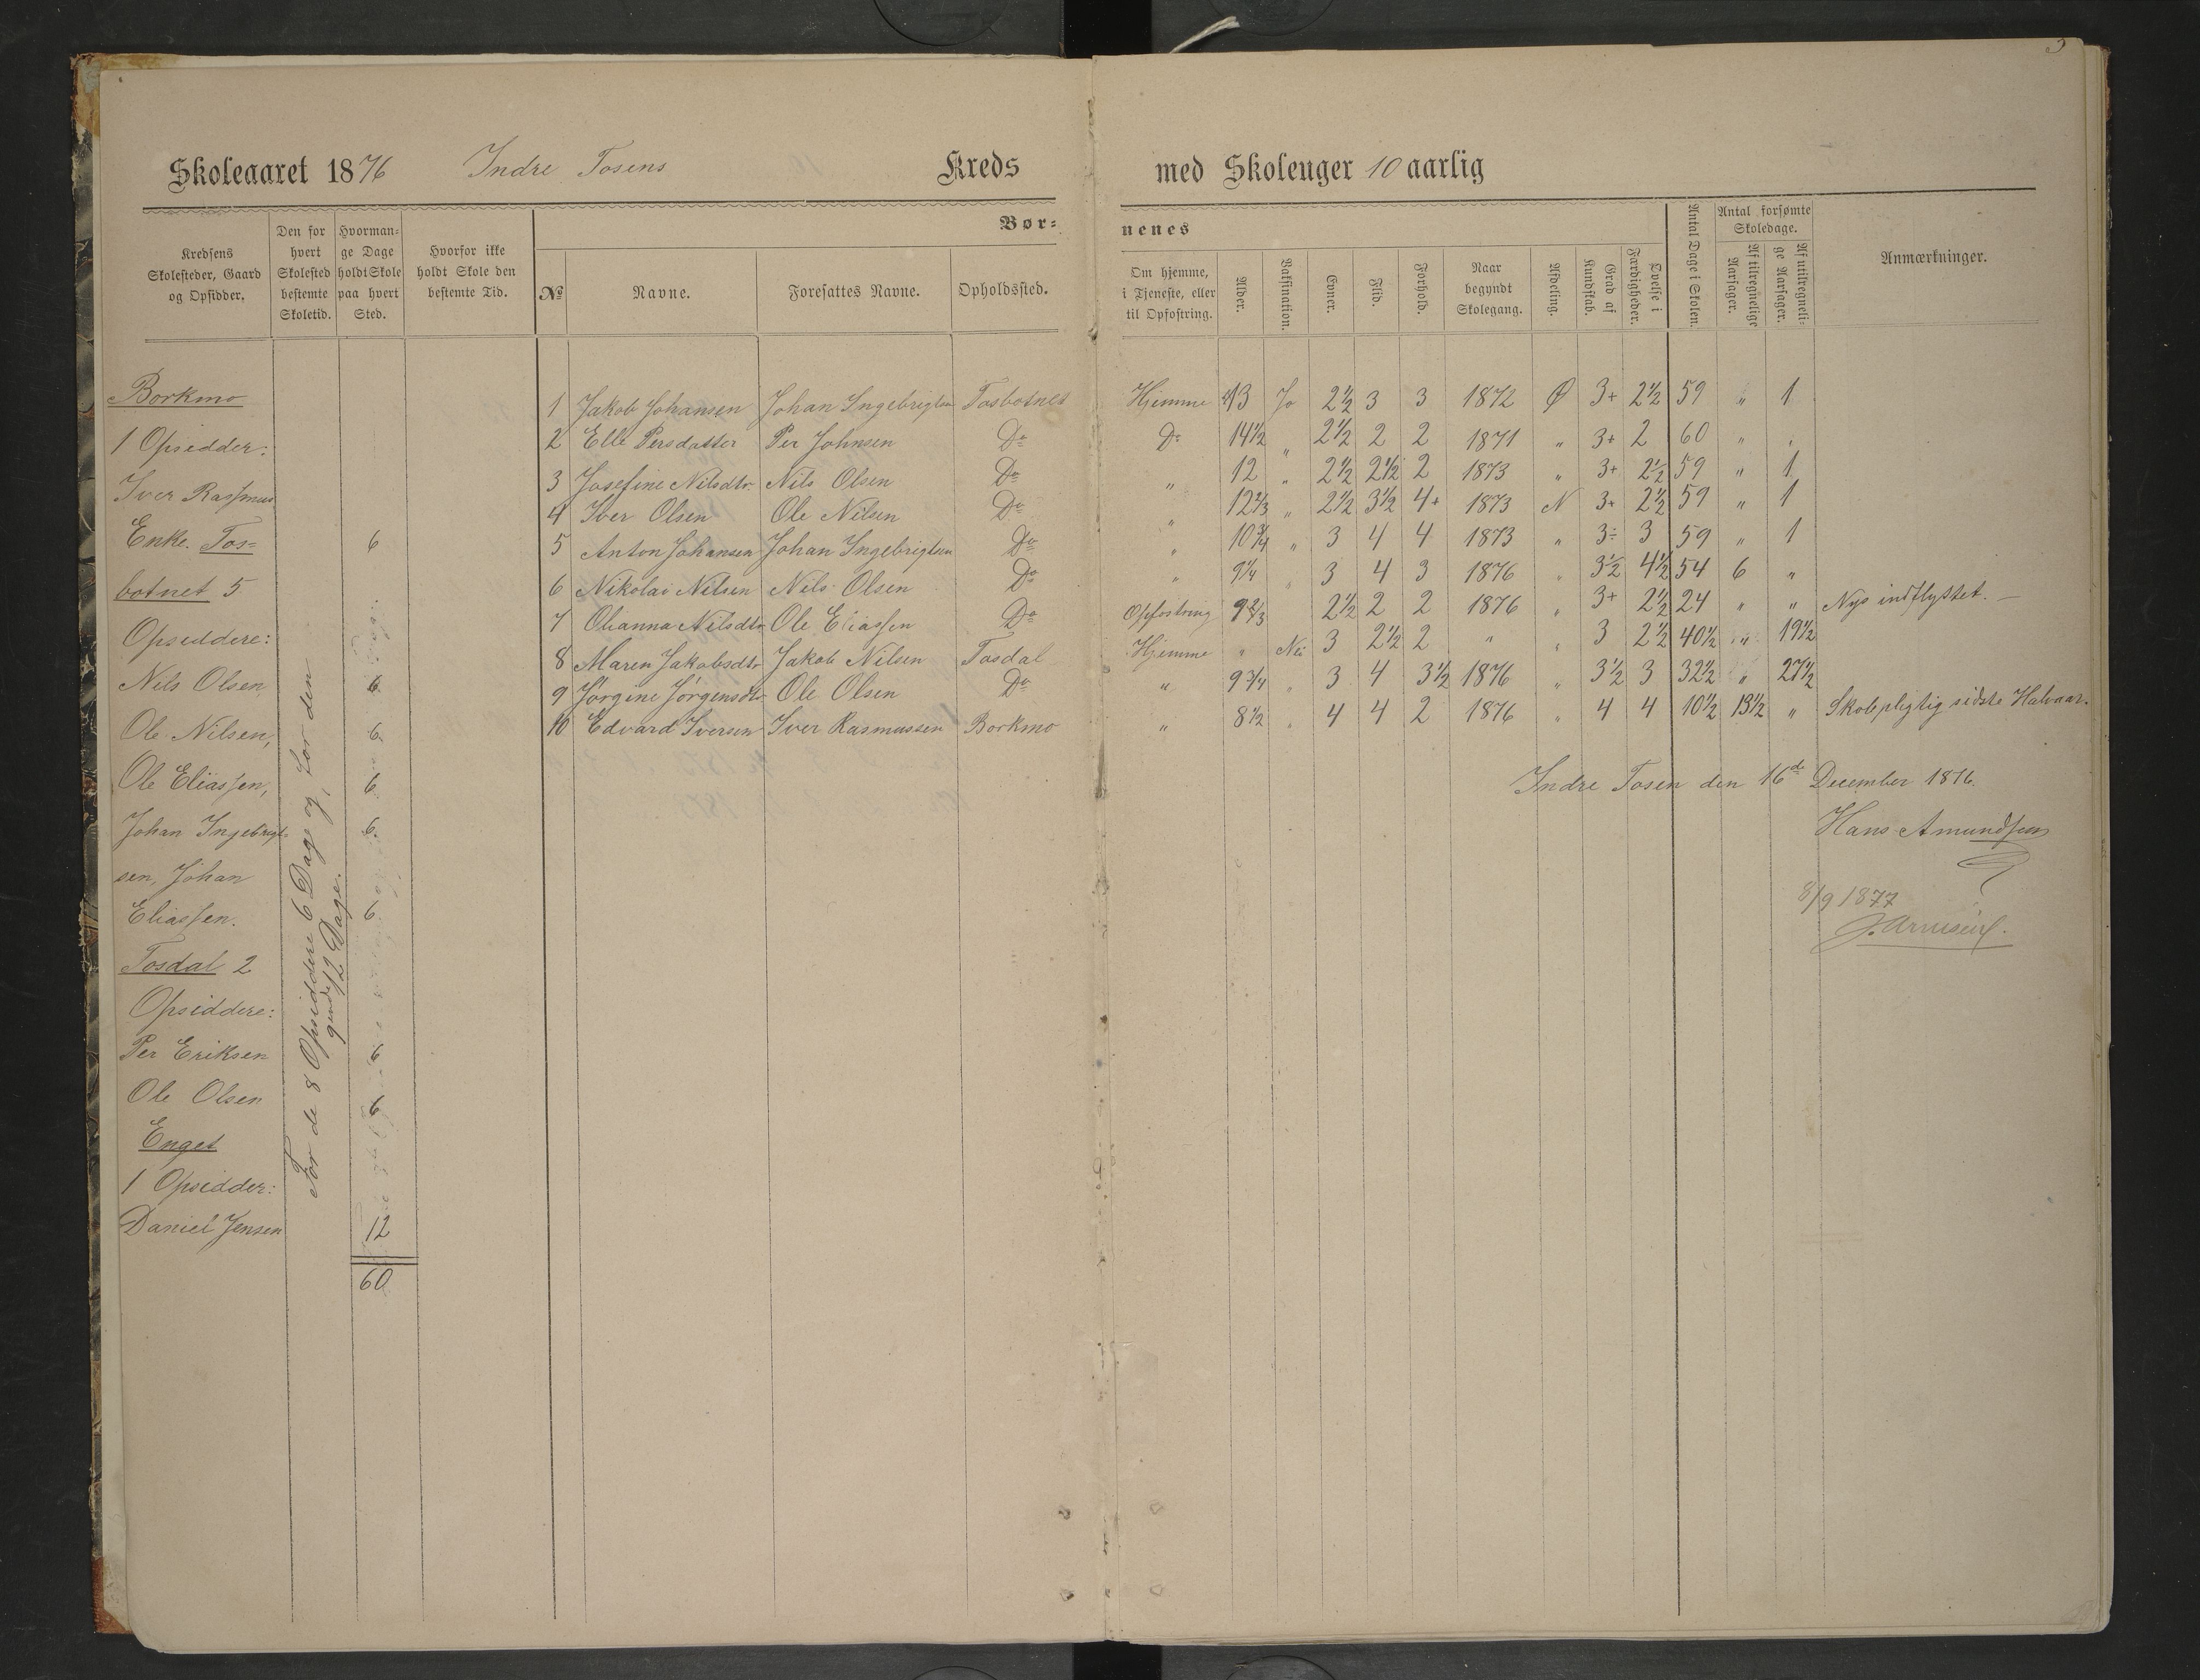 3
Skoleaaret 1876 Indre Tosens Kreds med Skoleuger 10 aarlig
Kredsens Skolesteder, Gaard og Opsidder.
Den for hvert Skolested bestemte Skoletid.
Hvormange Dage holdt Skole paa hvert Sted.
Hvorfor ikke holdt Skole den bestemte Tid.
Bør=
nenes
No
Navne.
Foresattes Navne.
Opholdssted.
Om hjemme, i Tjeneste, eller til Opfostring.
Alder.
Vaksination.
Evner.
Flid.
Forhold.
Naar begyndt Skolegang.
Afdeling.
Grad af Kundskab.
Øvelse i Færdigheder.
Antal Dage i Skolen.
Antal forsømte Skoledage.
Af tilregnelige Aarsager.
Af utilregnelige Aarsager.
Anmærkninger.
Borkmo
1 Opsidder:
Iver Rasmus
Enke. Tos= 6
botnet 5
Opsiddere:
Nils Olsen, 6
Ole Nilsen, 6
Ole Eliassen, 6
Johan Ingebrigt- 6
sen, Johan
Eliassen. 6
Tosdal 2
Opsiddere:
Per Eriksen 6
Ole Olsen 6
Enget
1 Opsidder:
Daniel Jensen 12
60
For de 8 Opsiddere 6 Dage og, for den
gende 12 Dage.
1 Jakob Johansen Johan Ingebrigtsen Tosbotnet Hjemme 13 Ja 2½ 3 3 1872 Ø 3+ 2½ 59 " 1
2 Elle Persdatter Per Johnsen Do Do 14½ " 2½ 2 2 1871 " 3+ 2 60 " "
3 Josefine Nilsdtr. Nils Olsen Do " 12 " 2½ 2½ 2 1873 " 3+ 2½ 59 " 1
4 Iver Olsen Ole Nilsen Do " 12⅔ " 2½ 3½ 4+ 1873 N 3+ 2½ 59 " 1
5 Anton Johansen Johan Ingebrigtsen Do " 10¾ " 3 4 4 1873 " 3÷ 3 59 " 1
6 Nikolai Nilsen Nils Olsen Do " 9¼ " 3 4 3 1876 " 3½ 4½ 54 6 "
7 Olianna Nilsdtr. Ole Eliassen Do Opfostring 9⅔ 2½ 2 2 1876 " 3+ 2½ 24 " " Nys indflyttet. —
8 Maren Jakobsdtr Jakob Nilsen Tosdal Hjemme " Nei 3 2½ 2 " " 3 2½ 40½ " 19½
9 Jørgine Jørgensdtr Ole Olsen Do " 9¾ " 3 4 3½ 1876 " 3½ 3 32½ " 27½
10 Edvard Iversen Iver Rasmussen Borkmo " 8½ " 4 4 2 1876 " 4 4 10½ 13½ " Skolepligtig sidste Halvaar.
Indre Tosen den 16de December 1876.
Hans Amundsen
8/9 1877